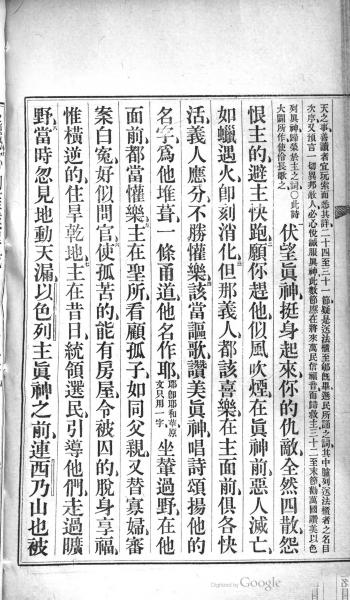 天之事、善讀者宜玩索而悉其詳、二十四至三十一節疑是送法櫃至郇旣畢選民所誦之詞、其中臚列送法櫃者之名目
次序、又預言一切異邦敵人必心悅誠服眞神、此數節應在將來萬民信福音而歸救主、三十二至末節勸萬國讚美以色
列眞神歸榮於主之詞○此詩
大闢所作、使伶長歌之、
伏望眞神挺身起來、你的仇敵、全然四散、怨
恨主的、避主快跑、願你趕他、似風吹煙、在眞神前、惡人滅亡、
如蠟遇火、卽刻消化、但那義人、都該喜樂、在主面前、俱各快
活、義人應分、不勝懽樂、該當謳歌、讚美眞神、唱詩頌揚他的
名字、爲他堆葺、一條甬道、他名作耶、耶卽耶和華原
文只用一字、坐輦過野、在他
面前、都當懽樂、主在聖所、看顧孤子、如同父親、又替寡婦、審
案白寃、好似問官、使孤苦的、能有房屋、令被囚的、脫身享福、
惟橫逆的、住旱乾地、主在昔日、統領選民、引導他們、走過曠
野、當時忽見地動天漏、以色列主眞神之前、連西乃山、也被
Digitized by Google